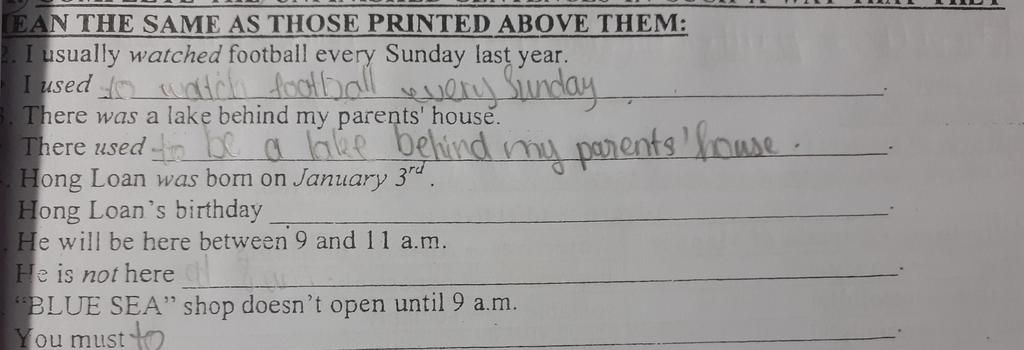 EAN THE SAME AS THOSE PRINTED ABOVE THEM:
2. I usually watched football every Sunday last year.
I used to watch football every Sunday.
. There was a lake behind my parents' house.
There used to be a lake behind my parents' house.
. Hong Loan was born on January 3rd.
Hong Loan's birthday
. He will be here between 9 and 11 a.m.
He is not here
. "BLUE SEA" shop doesn't open until 9 a.m.
You must to